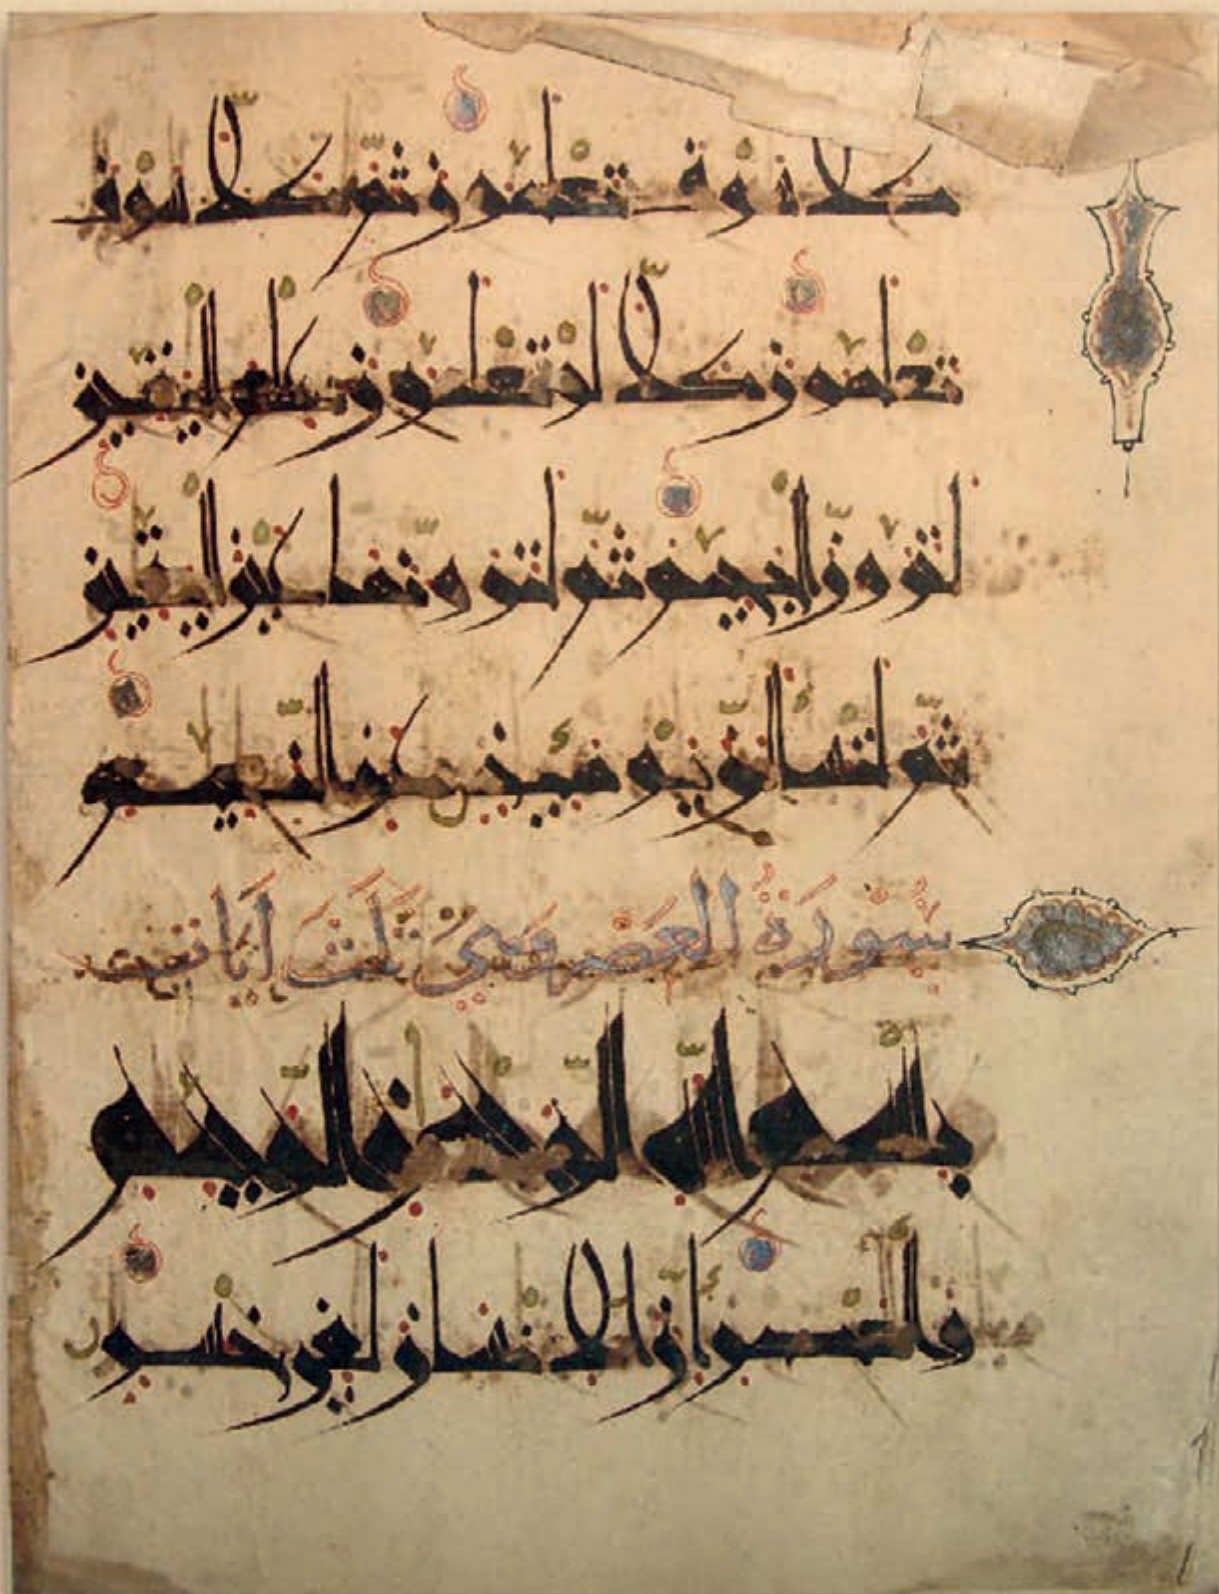 كلا سوف تعلمون ثم كلا سوف
تعلمون كلا لو تعلمون علم اليقين
لترون الجحيم ثم لترونها عين اليقين
ثم لتسلن يوميذ عن النعيم
سُورَةُ العَصْرِ وَهِيَ ثَلَث اَيَات
بسم الله الرحمن الرحيم
والعصر ان الانسان لفي خسر